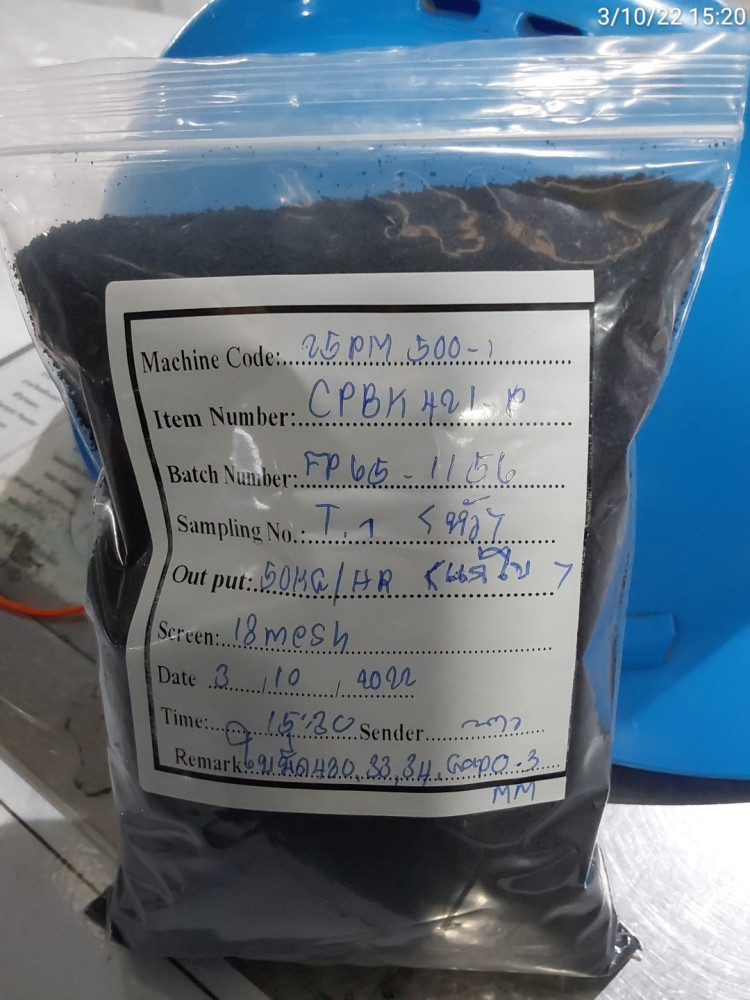 3/10/22 15:20
Machine Code: 25PM 500-1
Item Number: CPBK 421-P
Batch Number: FP65-1156
Sampling No.: T.1 <หัว>
Out put: 50KG/HR <แก้ไข>
Screen: 18 mesh
Date 3 / 10 / 2022
Time: 15:20 Sender
Remark ใบมีด 430, 33, 34, Gap 0.3
MM